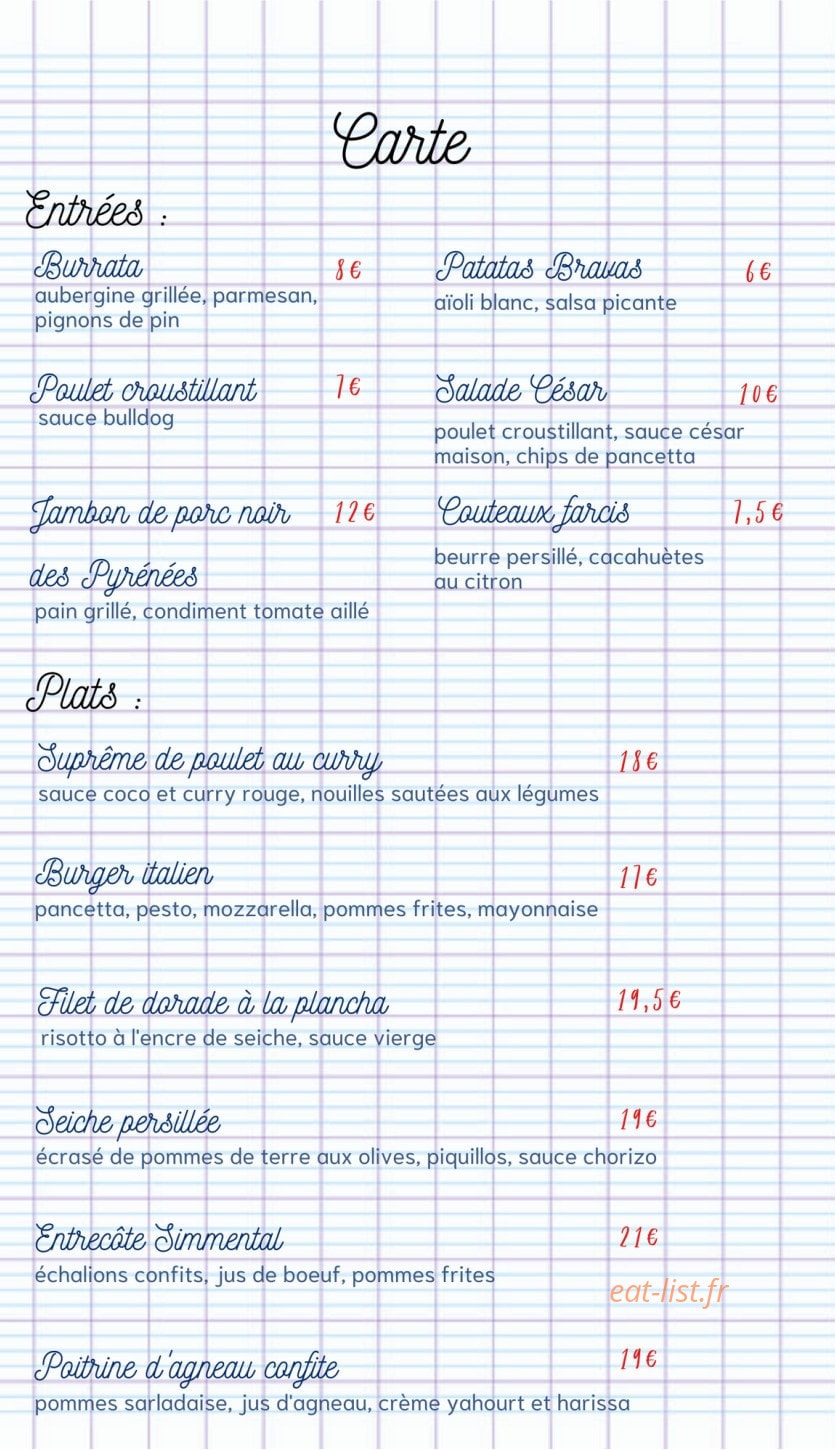 Carte
Entrées :
Burrata 8€
aubergine grillée, parmesan,
pignons de pin
Patatas Bravas 6€
aïoli blanc, salsa picante
Poulet croustillant 7€
sauce bulldog
Salade César 10€
poulet croustillant, sauce césar
maison, chips de pancetta
Jambon de porc noir 12€
des Pyrénées
pain grillé, condiment tomate aillé
Couteaux farcis 7,5€
beurre persillé, cacahuètes
au citron
Plats :
Suprême de poulet au curry 18€
sauce coco et curry rouge, nouilles sautées aux légumes
Burger italien 17€
pancetta, pesto, mozzarella, pommes frites, mayonnaise
Filet de dorade à la plancha 19,5€
risotto à l'encre de seiche, sauce vierge
Seiche persillée 19€
écrasé de pommes de terre aux olives, piquillos, sauce chorizo
Entrecôte Simmental 21€
échalions confits, jus de boeuf, pommes frites
eat-list.fr
Poitrine d'agneau confite 19€
pommes sarladaise, jus d'agneau, crème yahourt et harissa